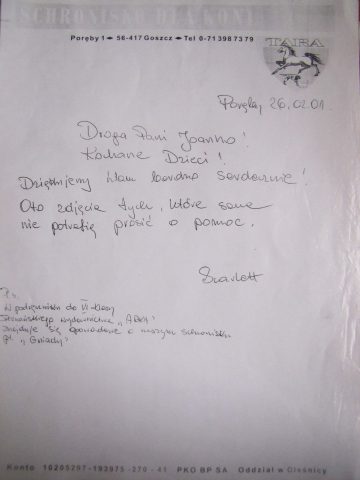 SCHRONISKO DLA KONI
Poręby 1 56-417 Goszcz Tel 0-71 398 73 79
TARA
Poręby, 26.02.01.
Droga Pani Joanno!
Kochane Dzieci!
Dziękujemy Wam bardzo serdecznie!
Oto zdjęcia tych, które same
nie potrafią prosić o pomoc.
Scarlett
P.s.
W podręczniku do VI-klasy
wydawnictwa "ADAM"
znajduje się opowiadanie o naszym schronisku
pt. "Gniady"
Konto 10205297-193975-270-41 PKO BP SA Oddział w Oleśnicy